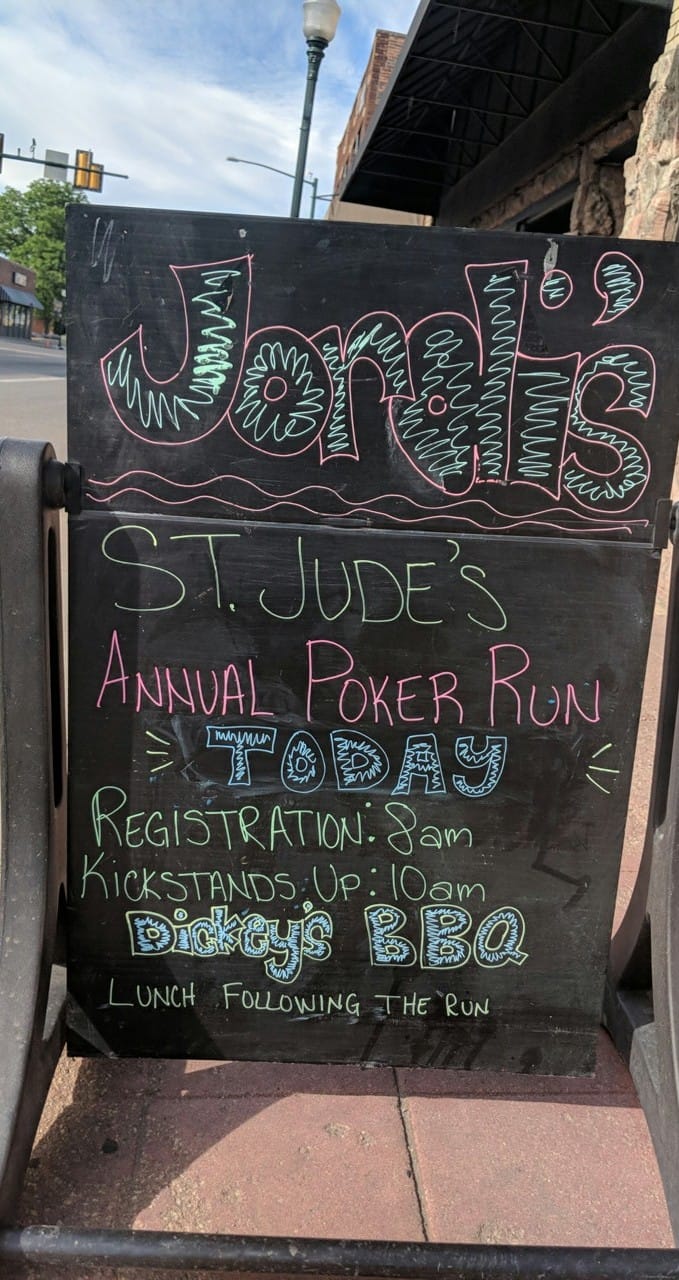 Jordi's
ST. JUDE'S
ANNUAL POKER RUN
TODAY
REGISTRATION: 8am
KICKSTANDS UP: 10am
Dickey's BBQ
LUNCH FOLLOWING THE RUN